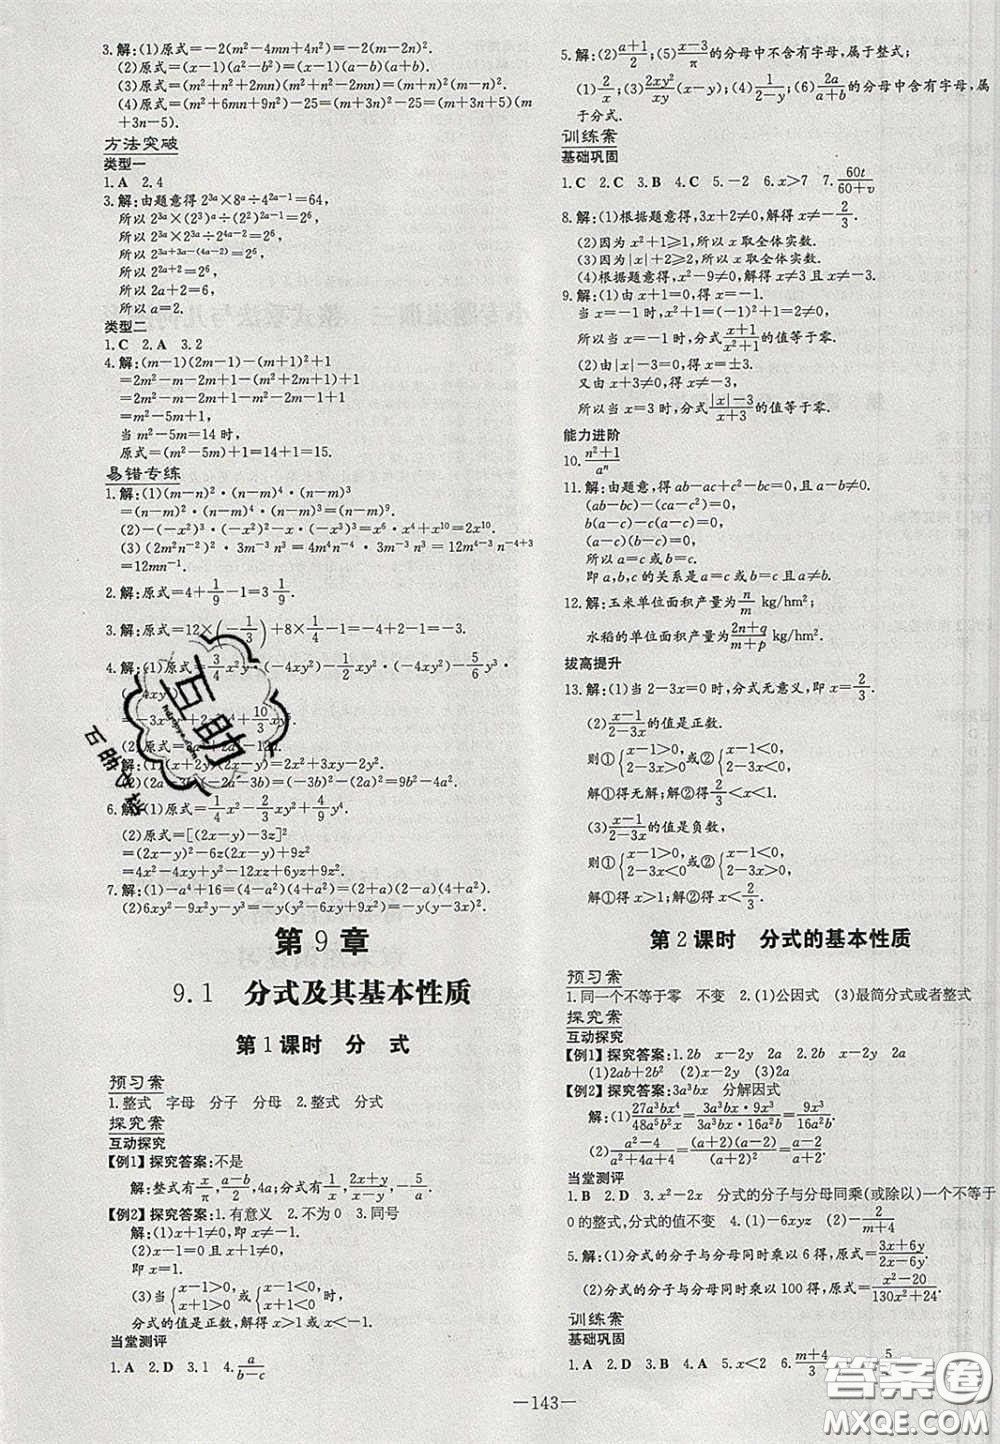 3.解:(1)原式=-2(m²-4mn+4n²)=-2(m-2n)².
(2)原式=(x-1)(a²-b²)=(x-1)(a-b)(a+b).
(3)原式=(m²+n²+2mn)(m²+n²-2mn)=(m+n)²(m-n)².
(4)原式=(m²+6mn+9n²)-25=(m+3n)²-25=(m+3n+5)(m
+3n-5).
方法突破
类型一
1.A 2.4
3.解:由题意得 2^{3a}×8^a÷4^{2a-1}=64,
所以 2^{3a}×(2³)^a÷(2²)^{2a-1}=2⁶,
所以 2^{3a}×2^{3a}÷2^{4a-2}=2⁶,
所以 2^{3a+3a-(4a-2)}=2⁶,
所以 2^{2a+2}=2⁶,
所以 2a+2=6,
所以 a=2.
类型二
1.C 2.A 3.2
4.解:(m-1)(2m-1)-(m+1)²+1
=2m²-m-2m+1-(m²+2m+1)+1
=2m²-m-2m+1-m²-2m-1+1
=m²-5m+1,
当 m²-5m=14 时,
原式=(m²-5m)+1=14+1=15.
易错专练
1.解:(1)(m-n)²·(n-m)⁴·(n-m)³
=(n-m)²·(n-m)⁴·(n-m)³=(n-m)⁹.
(2)-(-x²)³·(-x²)²-x·(-x³)³=x⁶·x⁴+x·x⁹=2x¹⁰.
(3)(2m²n⁻²)²·3m⁻³n³=4m⁴n⁻⁴·3m⁻³n³=12m^{4-3}n^{-4+3}
=12mn⁻¹.
2.解:原式=4+1/9-1=3 1/9.
3.解:原式=12×(-1/3)+8×1/4-1=-4+2-1=-3.
4.解:(1)原式=3/4x²y·(-4xy²)-1/2xy²·(-4xy²)-5/6y³·
(-4xy²)
=-3x³y³+2x²y⁴+10/3xy⁵.
(2)原式=
5.解:(1)(x+2y)(2x-y)=2x²+3xy-2y².
(2)(2a-3b)(-2a-3b)=(-3b)²-(2a)²=9b²-4a².
6.解:(1)原式=1/4x²-2/3xy²+4/9y⁴.
(2)原式=[(2x-y)-3z]²
=(2x-y)²-6z(2x-y)+9z²
=4x²-4xy+y²-12xz+6yz+9z².
7.解:(1)-a⁴+16=(4-a²)(4+a²)=(2-a)(2+a)(4+a²).
(2)6xy²-9x²y-y³=-y(y²-6xy+9x²)=-y(y-3x)².
第 9 章
9.1 分式及其基本性质
第 1 课时 分 式
预习案
1.整式 字母 分子 分母 2.整式 分式
探究案
互动探究
【例1】探究答案:不是
解:整式有x/π,(a-b)/2,4a;分式有1/x,(2x+y)/(x-y),x/y.
【例2】探究答案:1.有意义 2.不为0 3.同号
解:(1)x+1≠0,即 x≠-1.
(2)x-1=0,且 x+1≠0,
即 x=1.
(3)当{x-1>0, x+1>0或{x-1<0, x+1<0时,
分式的值是正数,解得 x>1或 x<-1.
当堂测评
1.A 2.D 3.1 4.a/(b-c)
5.解:(2)(a+1)/2;(5)(x-3)/π的分母中不含有字母,属于整式;
(1)2/x;(3)2xy²/xy(x-y);(4)1/(2-y);(6)2a/(a+b)的分母中含有字母,属
于分式.
训练案
基础巩固
1.C 2.C 3.B 4.C 5.-2 6.x>7 7.60t/(60+v)
8.解:(1)根据题意得,3x+2≠0,解得 x≠-2/3.
(2)因为 x²+1⩾1,所以 x 取全体实数.
(3)因为|x|+2⩾2,所以 x 取全体实数.
(4)根据题意得,x²-9≠0,解得 x≠±3.
9.解:(1)由 x+1=0,得 x=-1.
当 x=-1 时,x²+1=(-1)²+1=2≠0,
所以当 x=-1 时,分式(x+1)/(x²+1)的值等于零.
(2)由|x|-3=0,得 x=±3.
又由 x+3≠0,得 x≠-3.
所以当 x=3 时,分式(|x|-3)/(x+3)的值等于零.
能力进阶
10.(n²+1)/aⁿ
11.解:由题意,得 ab-ac+c²-bc=0,且 a-c≠0.
(ab-bc)-(ca-c²)=0,
b(a-c)-c(a-c)=0,
(a-c)(b-c)=0,
所以 a=c 或 b=c.
即 a,b,c 的关系是 a=c 或 b=c 且 a≠c.
12.解:玉米单位面积产量为n/m kg/hm²;
水稻的单位面积产量为(2n+q)/(m+p) kg/hm².
拔高提升
13.解:(1)当 2-3x=0 时,分式无意义,即 x=2/3.
(2)(x-1)/(2-3x)的值是正数.
则①{x-1>0, 2-3x>0或②{x-1<0, 2-3x<0,
解①得无解;解②得2/3<x<1.
(3)(x-1)/(2-3x)的值是负数,
则①{x-1>0, 2-3x<0或②{x-1<0, 2-3x>0,
解①得 x>1,解②得 x<2/3.
第 2 课时 分式的基本性质
预习案
1.同一个不等于零 不变 2.(1)公因式 (3)最简分式或者整式
探究案
互动探究
【例1】探究答案:1.2b x-2y 2a 2.2b x-2y 2a
(1)2ab+2b² (2)x-2y (3)2a
【例2】探究答案:3a³bx 分解因式
解:(1)27a³bx⁴/48a⁵b²x²=3a³bx·9x³/3a³bx·16a²b=9x³/16a²bx.
(2)(a²-4)/(a²+4a+4)=(a+2)(a-2)/(a+2)²=(a-2)/(a+2).
当堂测评
1.B 2.D 3.x²-2x 分式的分子与分母同乘(或除以)一个不等于
0的整式,分式的值不变 4.(1)-6xyz (2)-2/(m+4)
5.解:(1)分式的分子与分母同时乘以 6 得,原式=(3x+6y)/(2x-6y).
(2)分式的分子与分母同时乘以 100 得,原式=(x²-20)/(130x²+24).
训练案
基础巩固
1.C 2.A 3.D 4.A 5.x<2
—143—
互助
答案圈
MXQE.COM